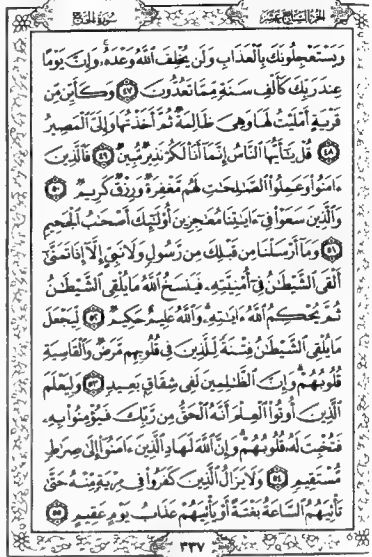 سورة الحج الجزء السابع عشر
وَيَسْتَعْجِلُونَكَ بِالْعَذَابِ وَلَن يُخْلِفَ اللَّهُ وَعْدَهُۥ وَإِنَّ يَوْمًا
عِندَ رَبِّكَ كَأَلْفِ سَنَةٍ مِّمَّا تَعُدُّونَ ٤٧ وَكَأَيِّن مِّن
قَرْيَةٍ أَمْلَيْتُ لَهَا وَهِىَ ظَالِمَةٌ ثُمَّ أَخَذْتُهَا وَإِلَىَّ الْمَصِيرُ
٤٨ قُلْ يَٰٓأَيُّهَا النَّاسُ إِنَّمَآ أَنَا۠ لَكُمْ نَذِيرٌ مُّبِينٌ ٤٩ فَالَّذِينَ
ءَامَنُوا۟ وَعَمِلُوا۟ الصَّٰلِحَٰتِ لَهُم مَّغْفِرَةٌ وَرِزْقٌ كَرِيمٌ ٥٠
وَالَّذِينَ سَعَوْا۟ فِىٓ ءَايَٰتِنَا مُعَٰجِزِينَ أُو۟لَٰٓئِكَ أَصْحَٰبُ الْجَحِيمِ
٥١ وَمَآ أَرْسَلْنَا مِن قَبْلِكَ مِن رَّسُولٍ وَلَا نَبِىٍّ إِلَّآ إِذَا تَمَنَّىٰٓ
أَلْقَى الشَّيْطَٰنُ فِىٓ أُمْنِيَّتِهِۦ فَيَنسَخُ اللَّهُ مَا يُلْقِى الشَّيْطَٰنُ
ثُمَّ يُحْكِمُ اللَّهُ ءَايَٰتِهِۦ وَاللَّهُ عَلِيمٌ حَكِيمٌ ٥٢ لِّيَجْعَلَ
مَا يُلْقِى الشَّيْطَٰنُ فِتْنَةً لِّلَّذِينَ فِى قُلُوبِهِم مَّرَضٌ وَالْقَاسِيَةِ
قُلُوبُهُمْ وَإِنَّ الظَّٰلِمِينَ لَفِى شِقَاقٍ بَعِيدٍ ٥٣ وَلِيَعْلَمَ
الَّذِينَ أُوتُوا۟ الْعِلْمَ أَنَّهُ الْحَقُّ مِن رَّبِّكَ فَيُؤْمِنُوا۟ بِهِۦ
فَتُخْبِتَ لَهُۥ قُلُوبُهُمْ وَإِنَّ اللَّهَ لَهَادِ الَّذِينَ ءَامَنُوٓا۟ إِلَىٰ صِرَٰطٍ
مُّسْتَقِيمٍ ٥٤ وَلَا يَزَالُ الَّذِينَ كَفَرُوا۟ فِى مِرْيَةٍ مِّنْهُ حَتَّىٰ
تَأْتِيَهُمُ السَّاعَةُ بَغْتَةً أَوْ يَأْتِيَهُمْ عَذَابُ يَوْمٍ عَقِيمٍ ٥٥
٣٣٧